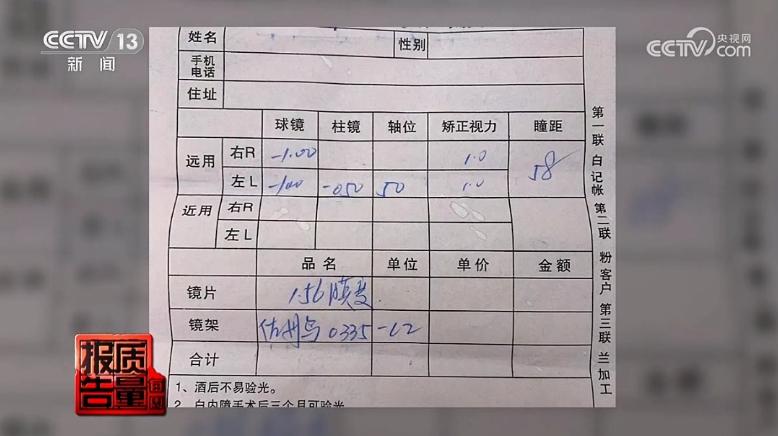 CCTV 13
新闻
CCTV 央视网
com
姓名 性别
手机
电话
住址
球镜 柱镜 轴位 矫正视力 瞳距
远用 右R -1.00 1.0 58
左L -1.00 -0.50 50 1.0
近用 右R
左L
品名 单位 单价 金额
镜片 1.56膜变
镜架 0335-C2
合计
1、酒后不易验光。
2、白内障手术后三个月可验光
第一联 白记帐 第二联 粉客户 第三联 兰加工
质量
报告